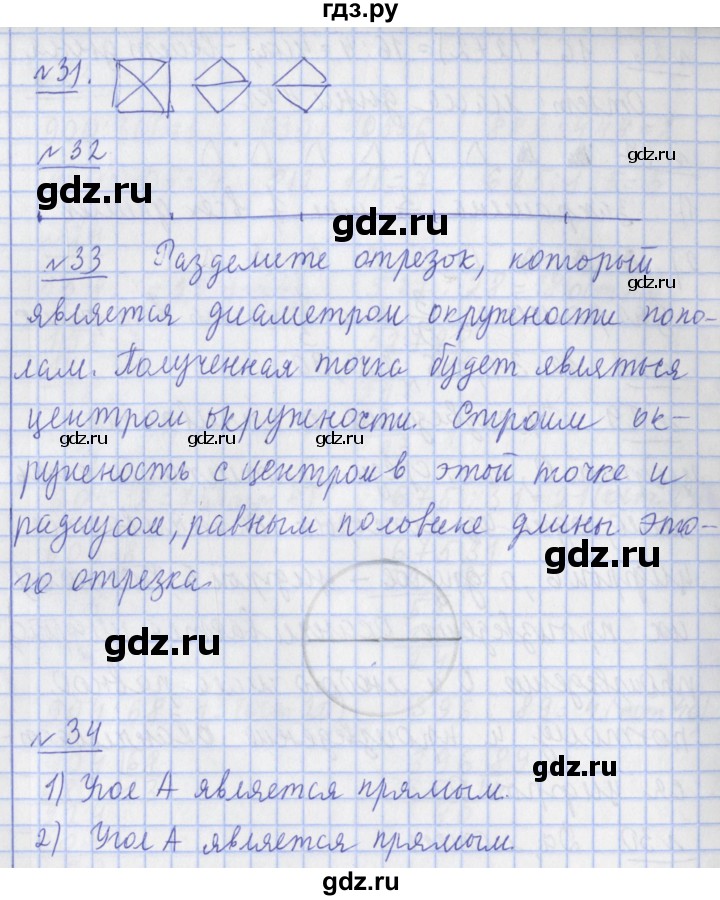 гдз.ру
№31.
№32
gdz.ru
gdz.ru
gdz.ru
№33 Разделите отрезок, который
gdz.ru
является диаметром окружности попо-
лам. Полученная точка будет являться
центром окружности. Строим ок-
gdz.ru gdz.ru gdz.ru gdz.ru
руженость с центром в этой точке и
радиусом, равным половине длины это-
gdz.ru
го отрезка.
gdz.ru
№34
1) Угол А является прямым.
gdz.ru
2) Угол А является прямым.
gdz.ru
гдз.ру